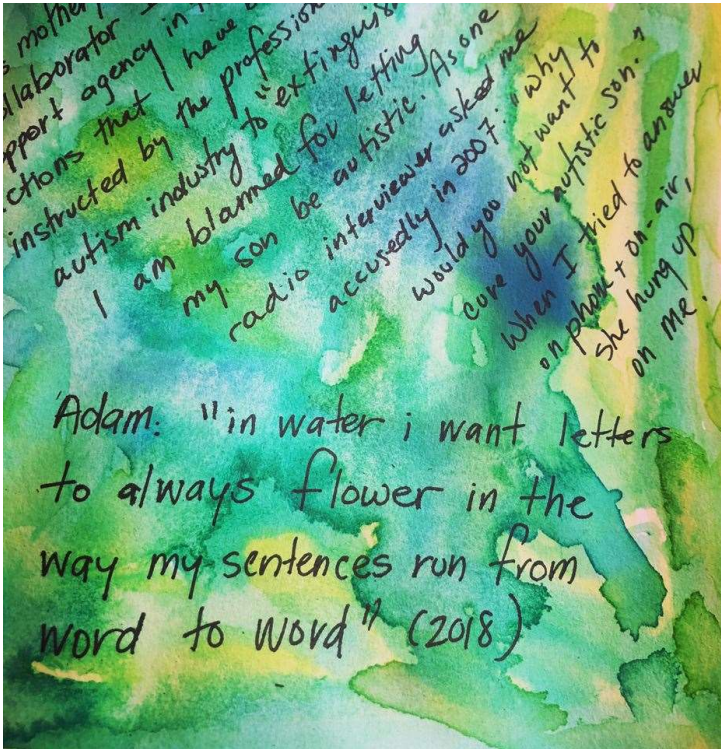 s mother
ollaborator
pport agency in
ctions that I have
instructed by the profession
autism industry to "extinguis
I am blamed for letting
my son be autistic. As one
radio interviewer asked me
accusedly in 2007: "why
would you not want to
cure your autistic son."
When I tried to answer
on phone + on-air,
she hung up
on me.
Adam: "in water i want letters
to always flower in the
way my sentences run from
word to word" (2018)